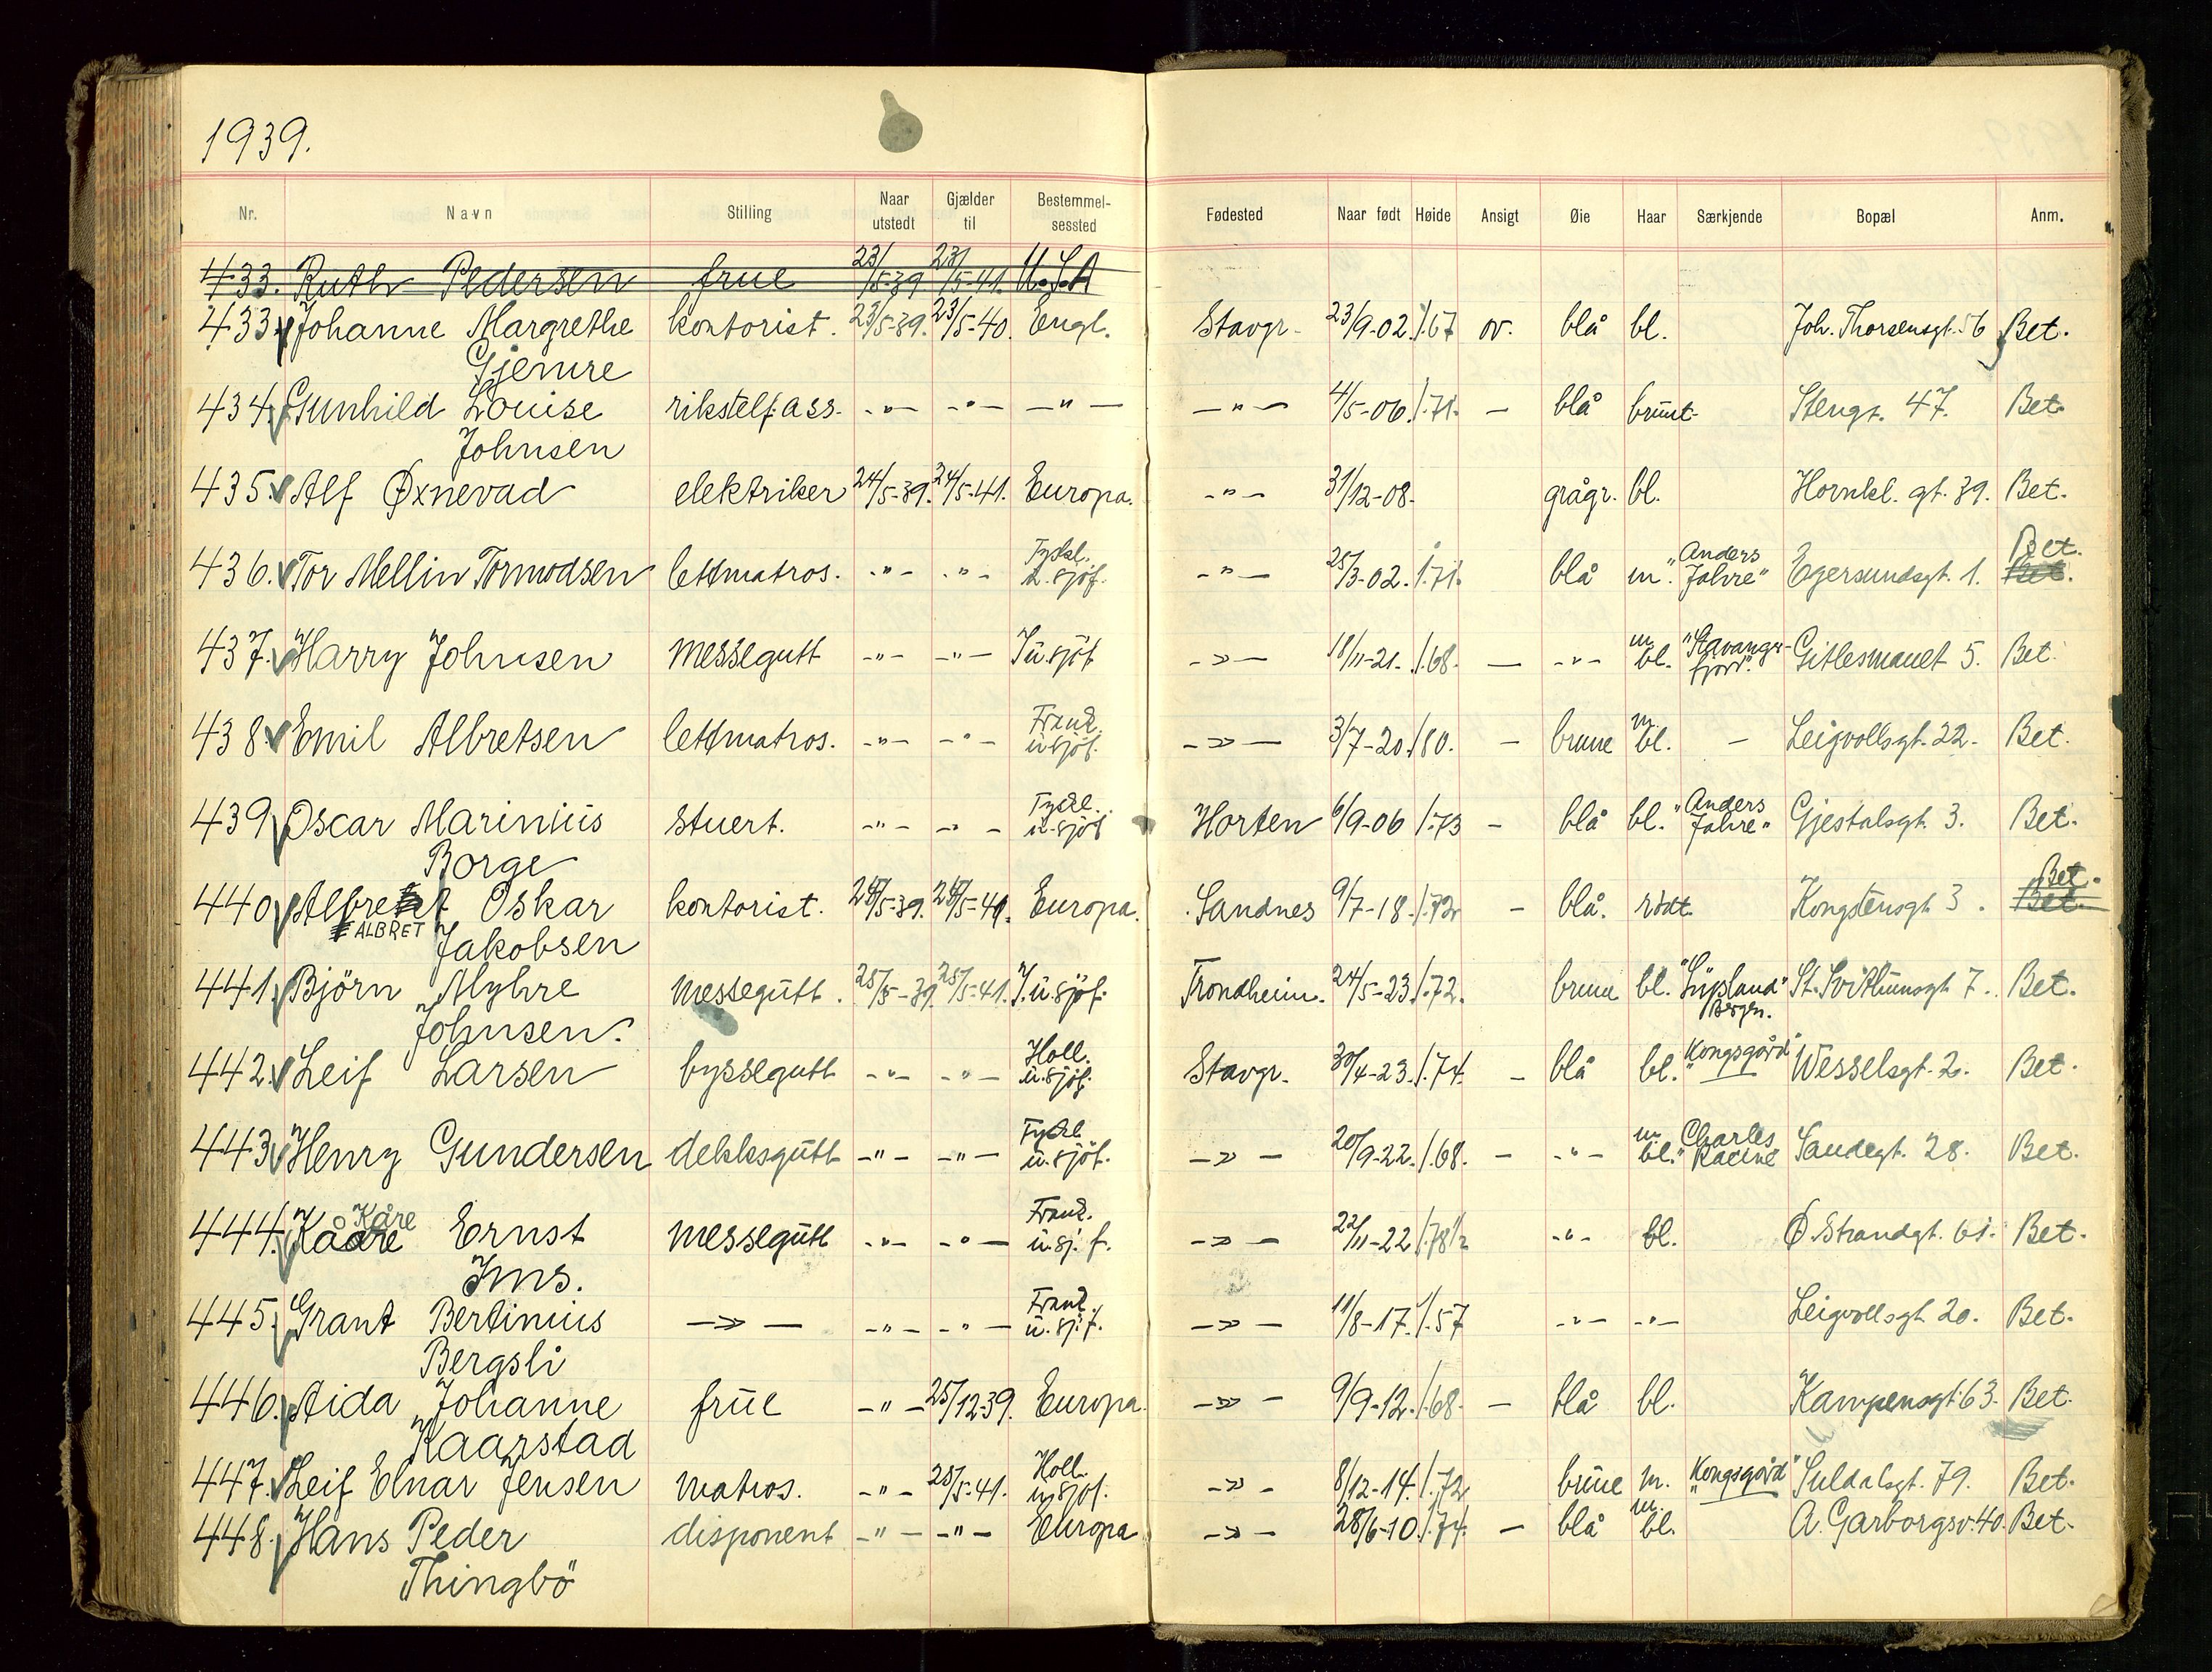 1939.
Nr. Navn Stilling Naar utstedt Gjælder til Bestemmelsessted Fødested Naar født Høide Ansigt Øie Haar Særkjende Bopæl Anm.
433. Ruth Pedersen frue 23/5-39 23/5-41. U.S.A
433. Johanne Margrethe kontorist. 23/5-39. 23/5-40. Engl. Stavgr. 23/9-02. 1.67 ov. blå bl. Joh. Thorsensgt. 56 Bet.
Gjemre
434. Gunhild Louise rikstelf. ass. -"- -"- -"- -"- 4/5-06. 1.71. - blå brunt. Stengt. 47. Bet.
Johnsen
435. Alf Øxnevad elektriker 24/5-39. 24/5-41. Europa. -"- 31/12-08. grågr. bl. Hornkl. gt. 39. Bet.
Tyskl. Anders Bet.
436. Tor Mellin Tormodsen lettmatros. -"- -"- u. sjöf. -"- 25/3-02. 1.71. blå m. "Jahre" Egersundsgt. 1. Bet.
m. "Stavanger-
437. Harry Johnsen messegutt -"- -"- I u. sjöf -"- 18/11-21. 1.68. - -"- bl. fjord". Gitlesmauet 5. Bet.
Frank. m.
438. Emil Albretsen lettmatros. -"- -"- u. sjöf. -"- 3/7-20. 1.80. - brune bl. - Leigvollsgt. 22. Bet.
Tyskl. "Anders
439. Oscar Marinius stuert. -"- -"- u. sjöf Horten 6/9-06 1.73 - blå bl. Jahre" Gjestalsgt. 3. Bet.
Borge
Bet.
440. Albret Oskar kontorist. Europa. Sandnes 9/7-18. 1.72 - blå. rödt. Kongstensgt 3. Bet.
ALBRET Jakobsen
441. Björn Myhre messegutt. 25/5-39. 25/5-41. I. u. sjöf. Trondheim. 24/5-23. 1.72. brune bl. St. Svithunsgt 7. Bet.
Johnsen. Bergen.
Holl. Kongsgård"
442. Leif Larsen byssegutt -"- -"- u. sjöf. Stavgr. 30/4-23. 1.74. - blå bl. " Wesselsgt. 2. Bet.
Tyskl. m. Charles
443. Henry Gundersen dekksgutt -"- -"- u. sjöf. -"- 20/9-22. 1.68. - -"- bl. " Racine Sandegt. 28. Bet.
Kåre Frank.
444. Kåre Ernst messegutt -"- -"- u. sj. f. -"- 22/11-22 1.78½ -"- bl. Ø. Strandgt. 61. Bet.
Ims.
Frank.
445. Grant Bertinius -"- -"- -"- u. sj. f. -"- 11/8-17. 1.57 -"- -"- Leigvollsgt. 20. Bet.
Bergsli
446. Aida Johanne frue -"- 25/12-39. Europa. -"- 9/9-12. 1.68. - blå bl. Kampensgt. 63. Bet.
Kaarstad
Holl.
447. Leif Einar Jensen matros. -"- 25/5-41. u. sjöf. -"- 8/12-14. 1.72 brune m. "Kongsgård" Suldalsgt. 79. Bet.
m.
448. Hans Peder disponent -"- -"- Europa -"- 28/6-10. 1.74. - blå bl. A. Garborgsv. 40. Bet.
Thingbö